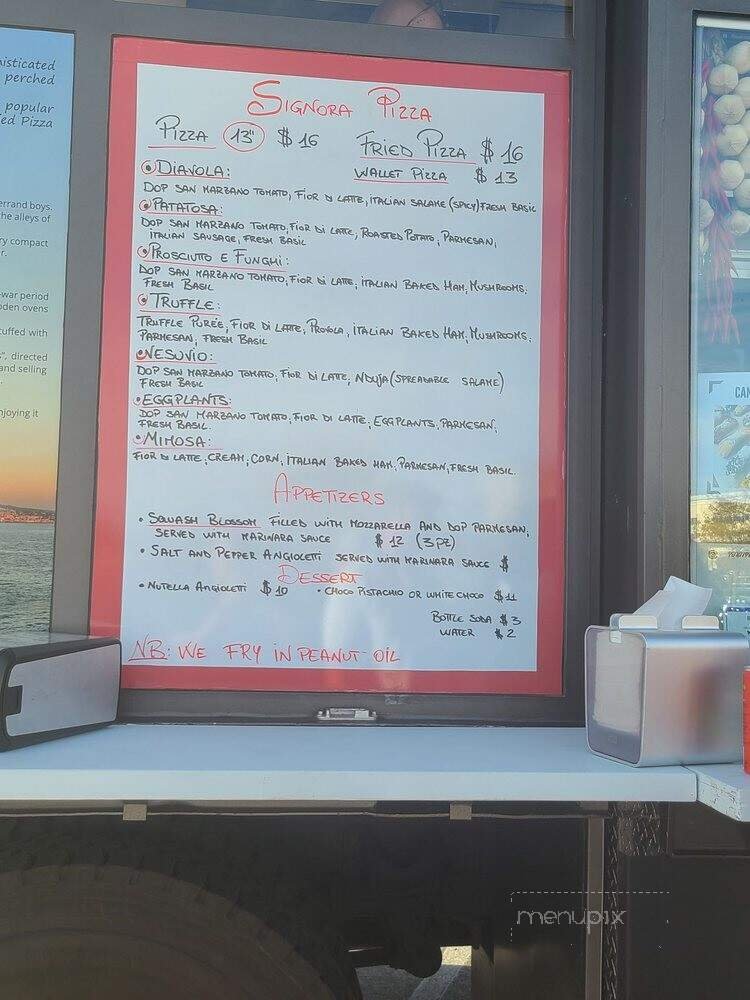 histicated
perched
popular
ied Pizza
errand boys.
he alleys of
ry compact
r.
-war period
oden ovens
tuffed with
", directed
and selling
njoying it
SIGNORA PIZZA
PIZZA 13" $16
FRIED PIZZA $16
WALLET PIZZA $13
• DIAVOLA:
DOP SAN MARZANO TOMATO, FIOR DI LATTE, ITALIAN SALAME (SPICY) FRESH BASIL
• PATATOSA:
DOP SAN MARZANO TOMATO, FIOR DI LATTE, ROASTED POTATO, PARMESAN,
ITALIAN SAUSAGE, FRESH BASIL
• PROSCIUTTO E FUNGHI:
DOP SAN MARZANO TOMATO, FIOR DI LATTE, ITALIAN BAKED HAM, MUSHROOMS,
FRESH BASIL
• TRUFFLE:
TRUFFLE PURÉE, FIOR DI LATTE, PROVOLA, ITALIAN BAKED HAM, MUSHROOMS,
PARMESAN, FRESH BASIL
• VESUVIO:
DOP SAN MARZANO TOMATO, FIOR DI LATTE, NDUJA (SPREADABLE SALAME)
FRESH BASIL
• EGGPLANTS:
DOP SAN MARZANO TOMATO, FIOR DI LATTE, EGGPLANTS, PARMESAN,
FRESH BASIL.
• MIMOSA:
FIOR DI LATTE, CREAM, CORN, ITALIAN BAKED HAM, PARMESAN, FRESH BASIL.
APPETIZERS
• SQUASH BLOSSOM FILLED WITH MOZZARELLA AND DOP PARMESAN,
SERVED WITH MARINARA SAUCE $12 (3 PZ)
• SALT AND PEPPER ANGIOLETTI SERVED WITH MARINARA SAUCE $
DESSERT
• NUTELLA ANGIOLETTI $10 • CHOCO PISTACHIO OR WHITE CHOCO $11
BOTTLE SODA $3
WATER $2
NB: WE FRY IN PEANUT OIL
CAN
menupix